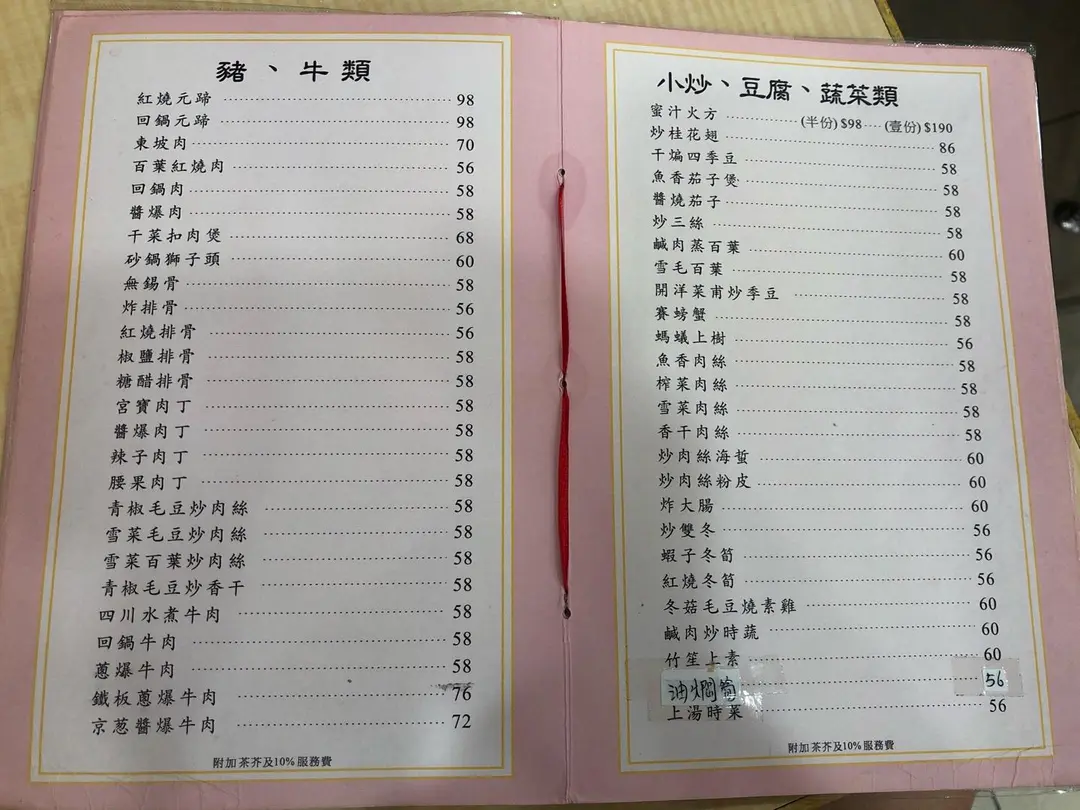 豬、牛類
紅燒元蹄 98
回鍋元蹄 98
東坡肉 70
百葉紅燒肉 56
回鍋肉 58
醬爆肉 58
干菜扣肉煲 68
砂鍋獅子頭 60
無錫骨 58
炸排骨 56
紅燒排骨 56
椒鹽排骨 58
糖醋排骨 58
宮寶肉丁 58
醬爆肉丁 58
辣子肉丁 58
腰果肉丁 58
青椒毛豆炒肉絲 58
雪菜毛豆炒肉絲 58
雪菜百葉炒肉絲 58
青椒毛豆炒香干 58
四川水煮牛肉 58
回鍋牛肉 58
蔥爆牛肉 58
鐵板蔥爆牛肉 76
京葱醬爆牛肉 72
附加茶芥及10%服務費
小炒、豆腐、蔬菜類
蜜汁火方 (半份) $98 (壹份) $190
炒桂花翅 86
干煸四季豆 58
魚香茄子煲 58
醬燒茄子 58
炒三絲 58
鹹肉蒸百葉 60
雪毛百葉 58
開洋菜甫炒季豆 58
賽螃蟹 58
螞蟻上樹 56
魚香肉絲 58
榨菜肉絲 58
雪菜肉絲 58
香干肉絲 58
炒肉絲海蜇 60
炒肉絲粉皮 60
炸大腸 60
炒雙冬 56
蝦子冬筍 56
紅燒冬筍 56
冬菇毛豆燒素雞 60
鹹肉炒時蔬 60
竹笙上素 60
油燜筍 56
上湯時菜 56
附加茶芥及10%服務費